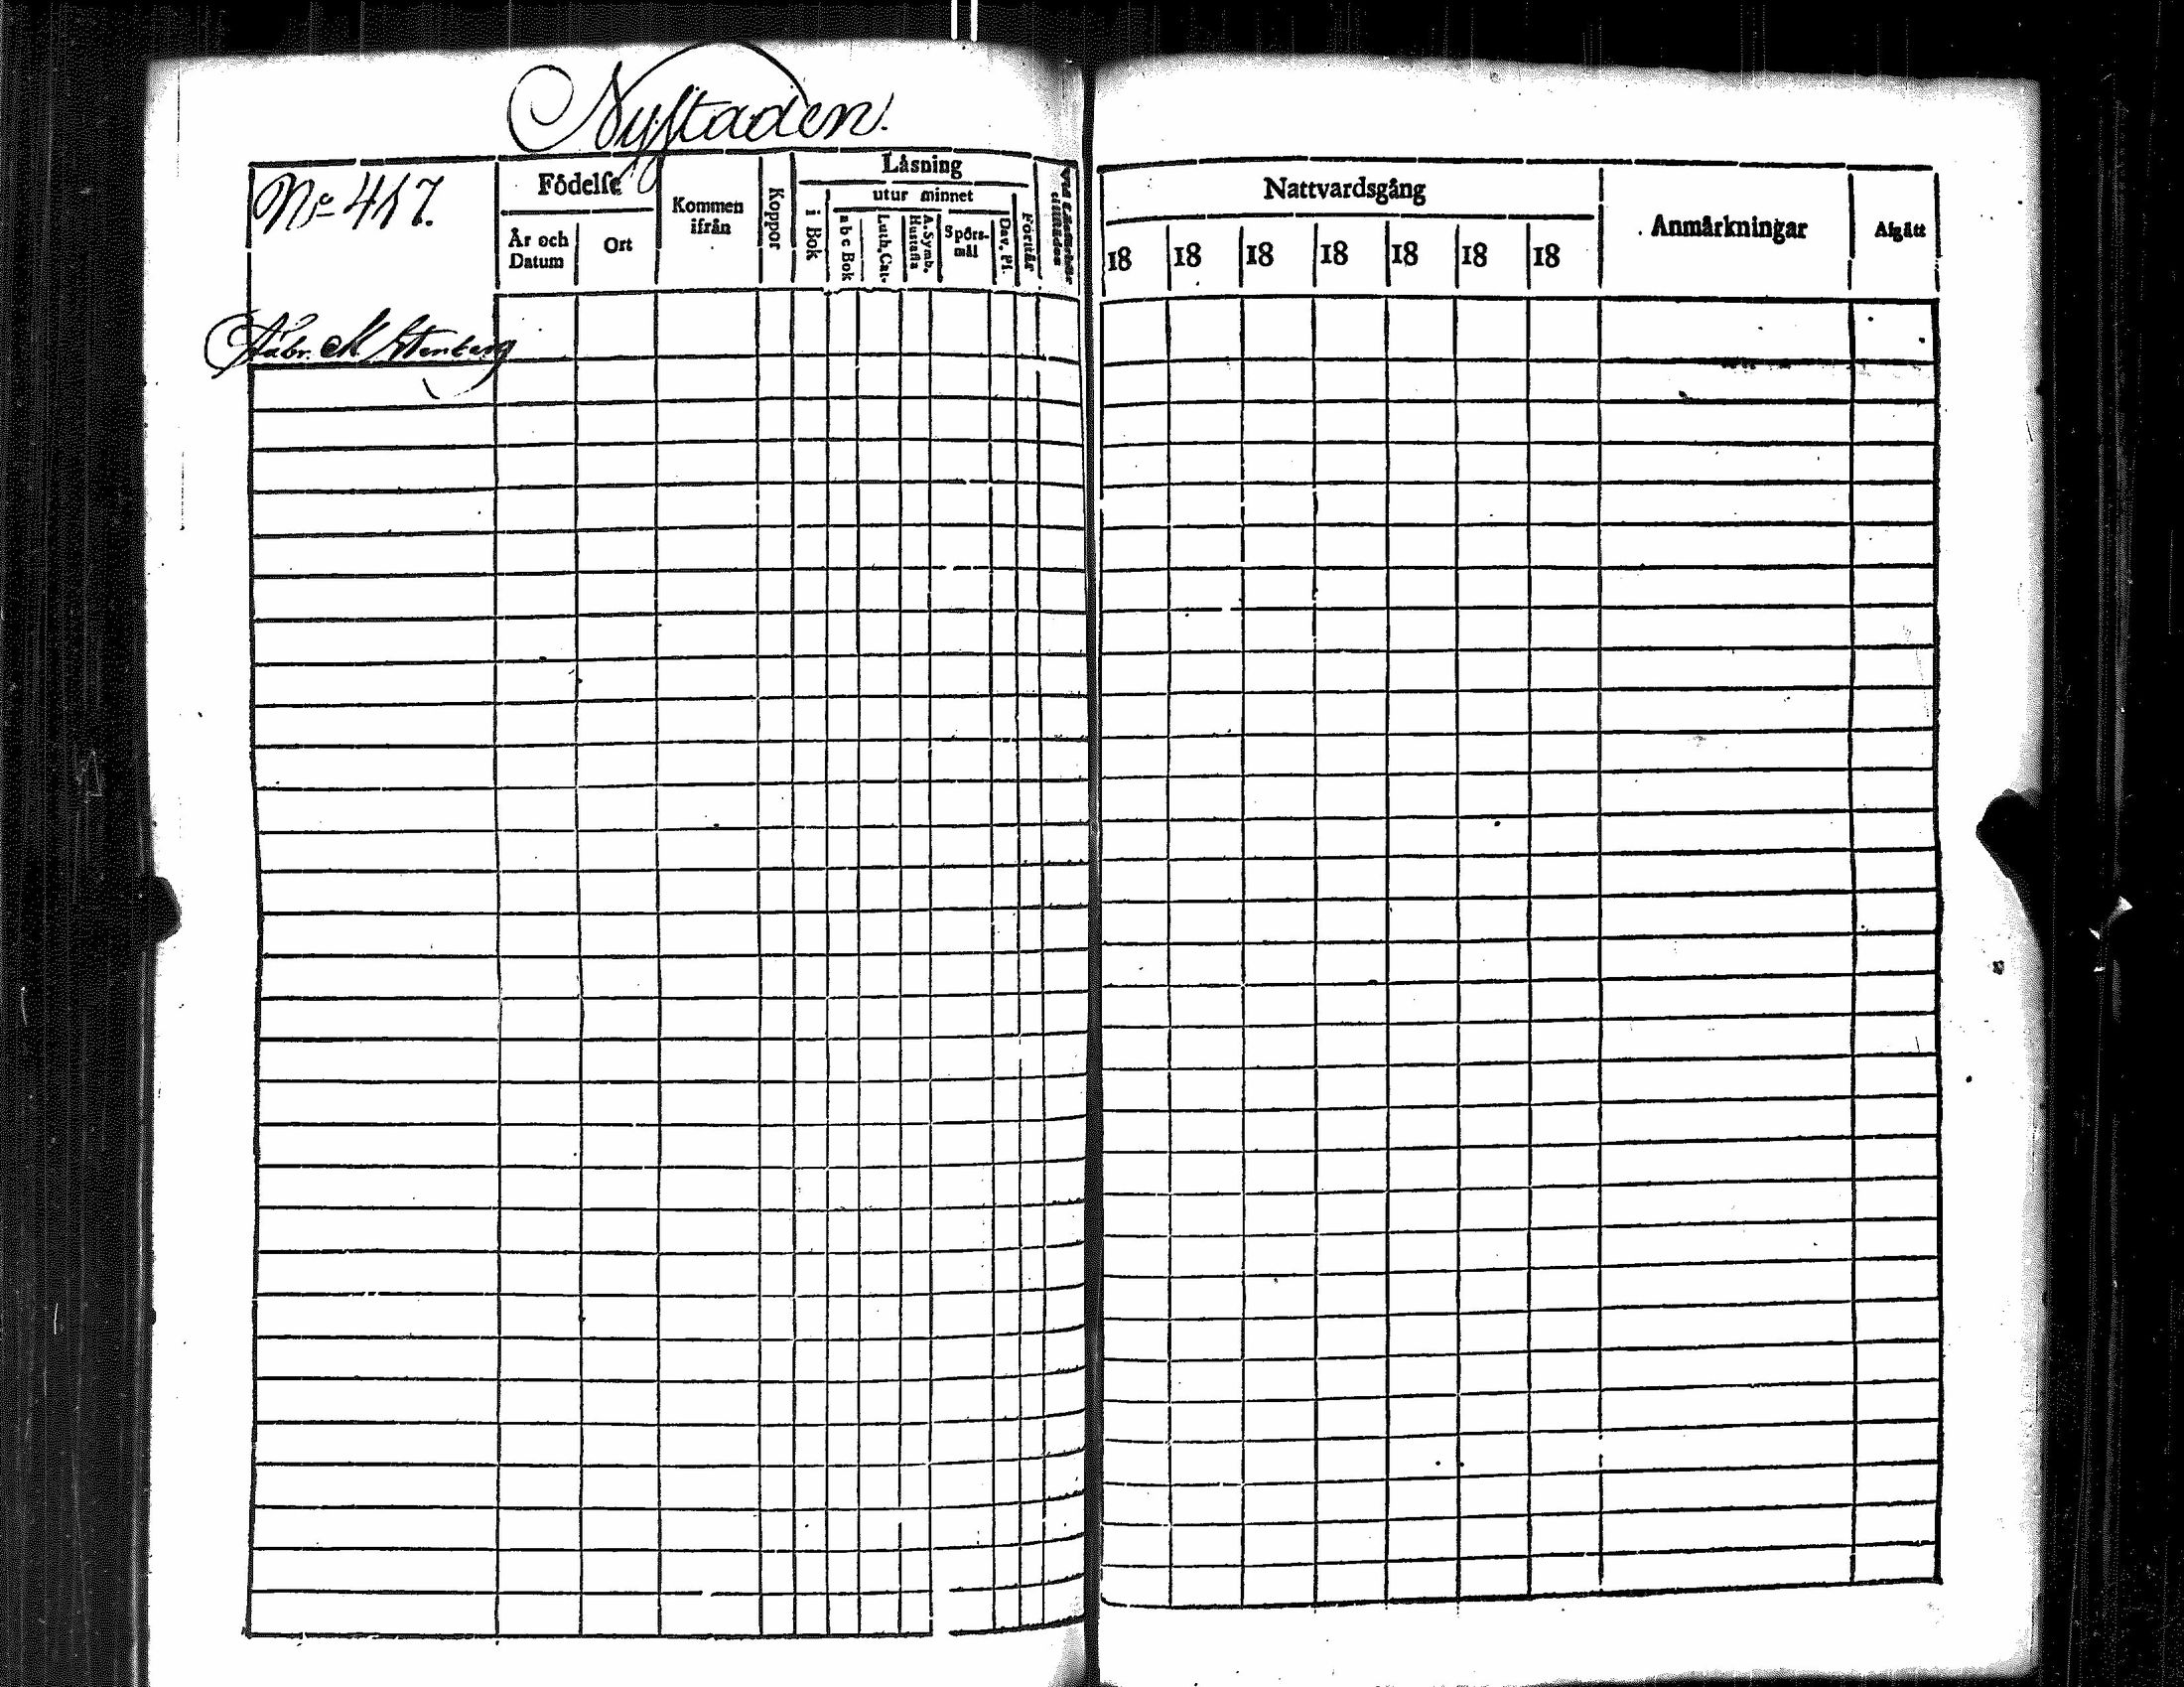 Nyſtaden.
No 417.
Födelſe
År och Datum
Ort
Kommen ifrån
Koppor
Läsning
i Bok
utur minnet
a b c Bok
Luth. Cat.
A. Symb. Hustafla
Spörs-mål
Dav. Pſ.
Förſtår
Fabr. M. Stenberg
Nattvardsgång
18 18 18 18 18 18 18
Anmärkningar
Afgått